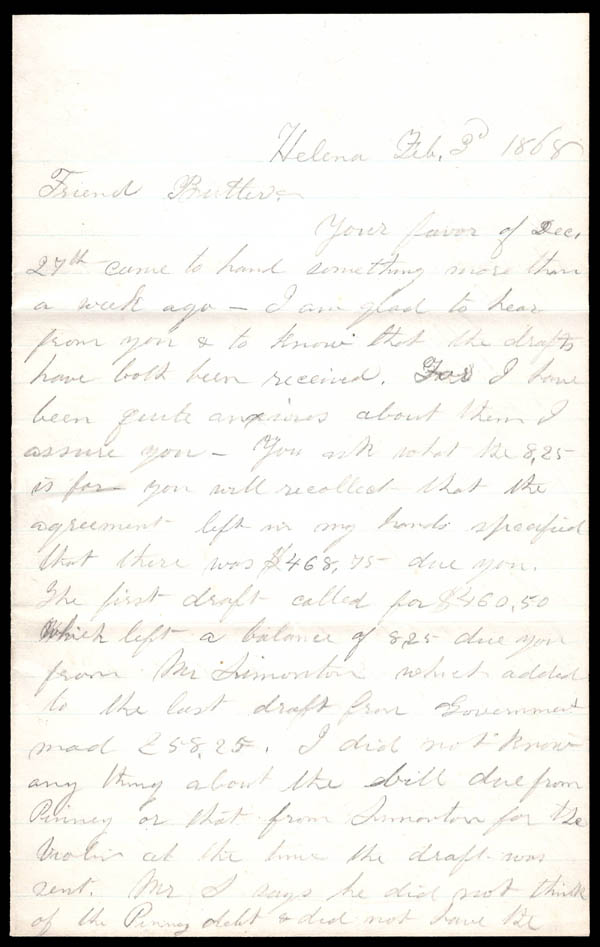 Helena Feb. 3d 1868
Friend Butler
Your favor of Dec.
27th came to hand something more than
a week ago – I am glad to hear
from you & to know that the drafts
have both been received. I have
been quite anxious about them I
assure you – You ask what the 8,25
is for you will recollect that the
agreement left in my hands specified
that there was $468,75 due you.
The first draft called for $460,50
Which left a balance of 825 due you
from Mr Simonton which added
to the last draft from Government
mad 258,25. I did not know
any thing about the bill due from
Pinney or that from Simonton for the
Violin at the time the draft was
sent. Mr S says he did not think
of the Pinney debt & did not have the